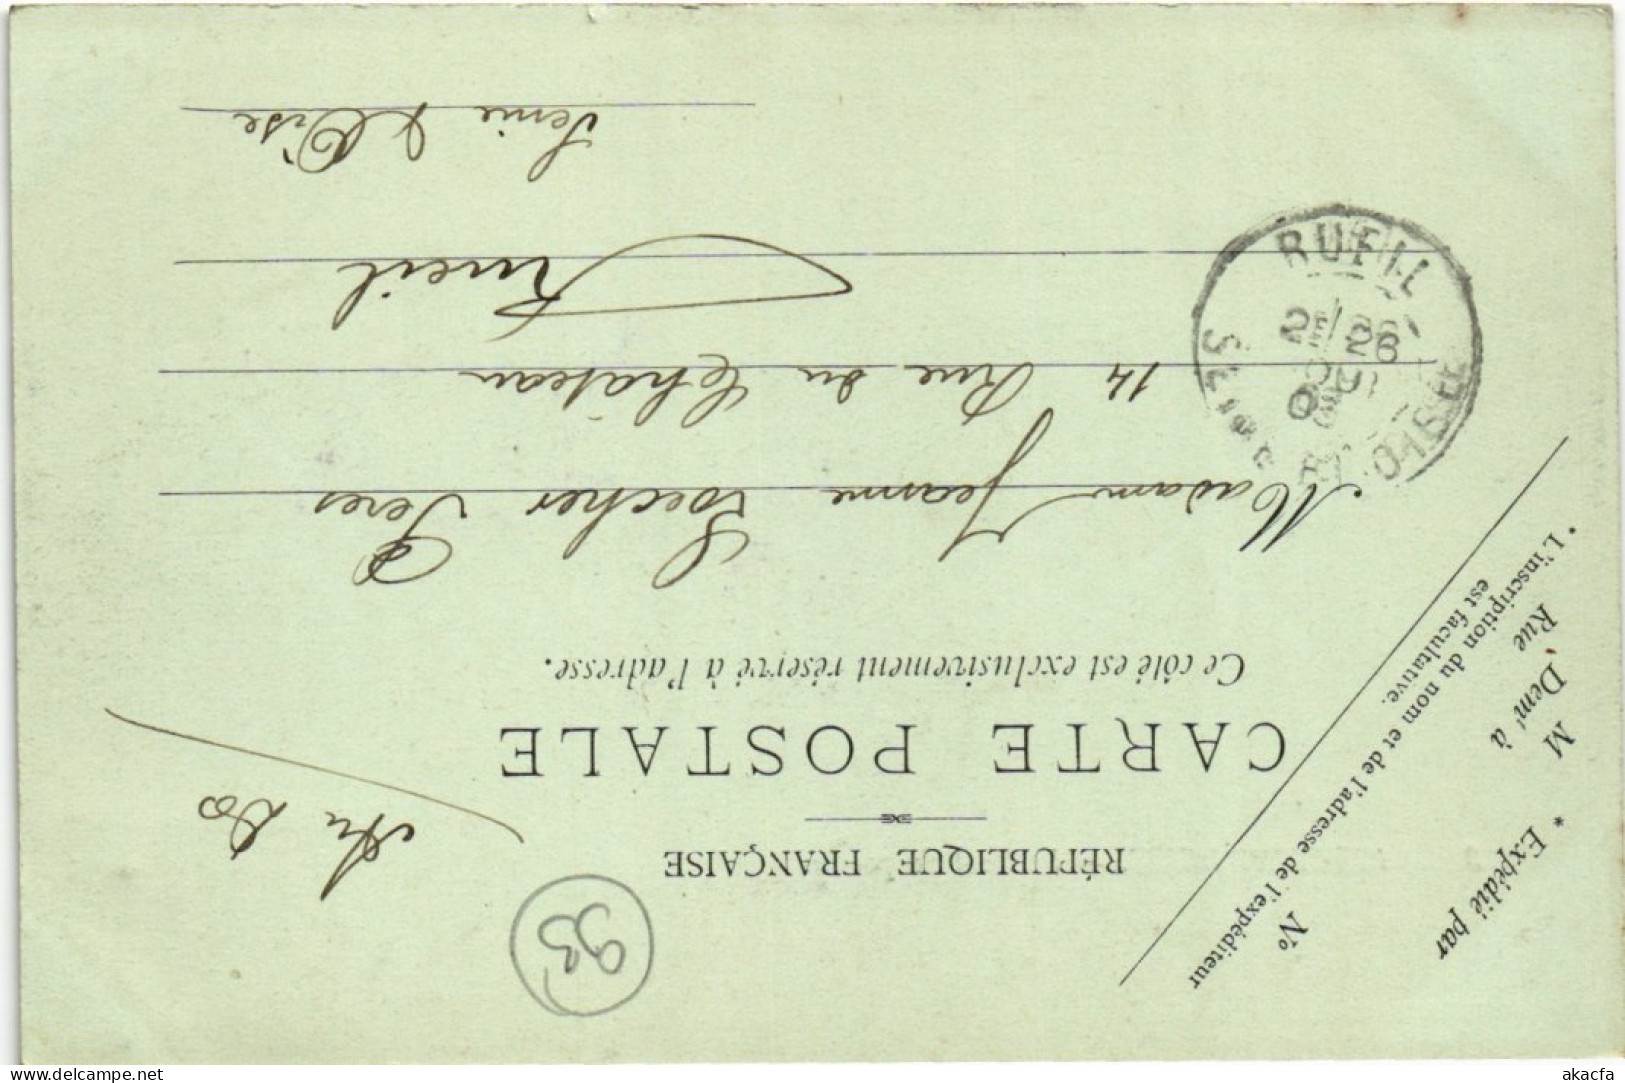 RÉPUBLIQUE FRANÇAISE
CARTE POSTALE
Ce côté est exclusivement réservé à l'adresse.
* Expédié par
M
Dem^t à
Rue
N°
* L'inscription du nom et de l'adresse de l'expéditeur
est facultative.
93
Madame Jeanne Loecher Peres
14 Rue du Château
Rueil
Seine & Oise
RUEIL
OISE
delcampe.net
akacfa